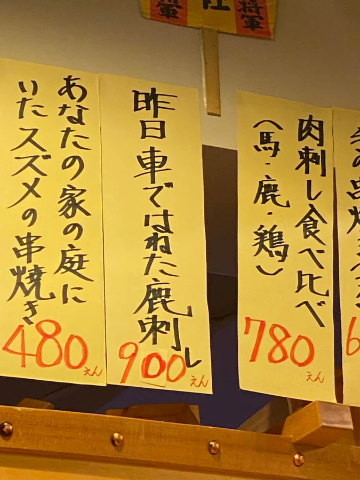 将軍
将軍
肉刺し食べ比べ
(馬・鹿・鶏)
780えん
昨日車ではねた鹿刺し
900えん
あなたの家の庭に
いたスズメの串焼き
480えん